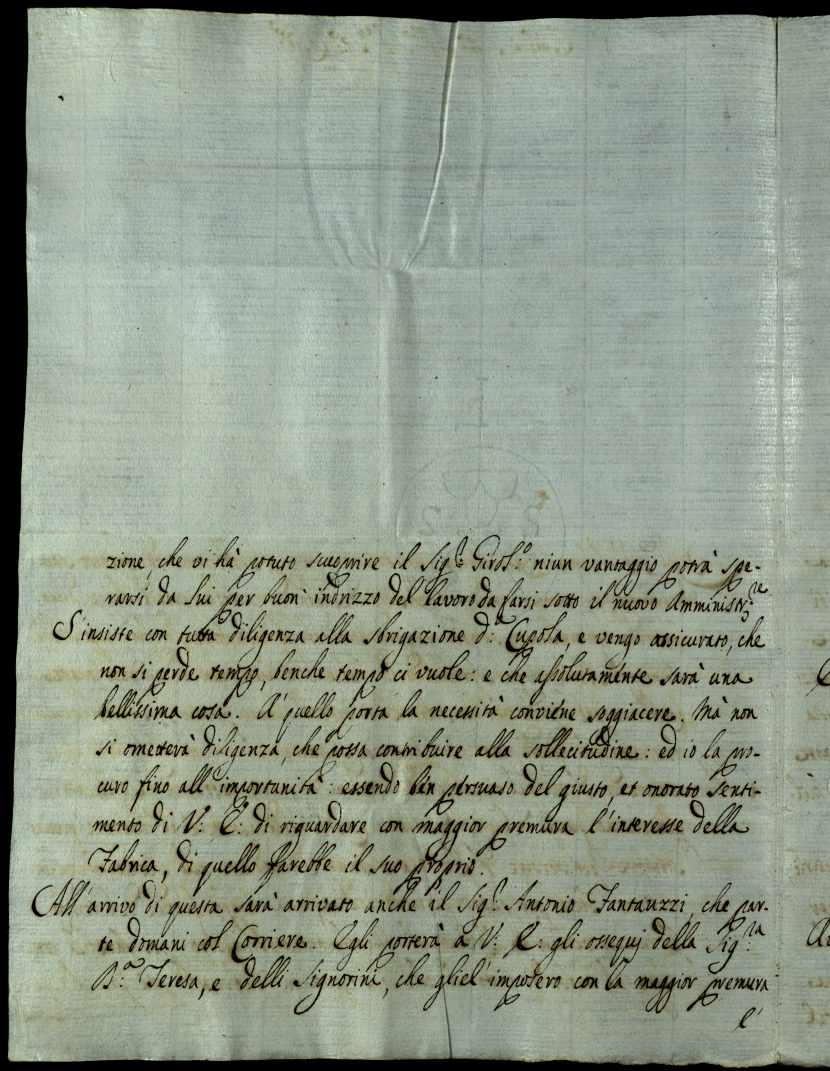 zione, che vi hà potuto scuoprire il Sig.r Girol.o niun vantaggio potrà spe-
rarsi da lui per buon' indrizzo del lavoro da farsi sotto il nuovo Amministr.re
S'insiste con tutta diligenza alla sbrigazione d.a Cupola, e vengo assicurato, che
non si perde tempo, benche tempo ci vuole: e che assolutamente sarà una
bellissima cosa. A' quello porta la necessità conviene soggiacere. Mà non
si ometterà diligenza, che possa contribuire alla sollecitudine: ed io la pro-
curo fino all'importunità: essendo ben persuaso del giusto, et onorato senti-
mento di V: E: di riguardare con maggior premura l'interesse della
Fabrica, di quello farebbe il suo proprio.
All'arrivo di questa sarà arrivato anche il Sig.r Antonio Fantauzzi, che par-
te domani col Corriere. Egli porterà a V: E: gli ossequj della Sig.ra
B.a Teresa, e delli Signorini, che gliel'imposero con la maggior premura
e'